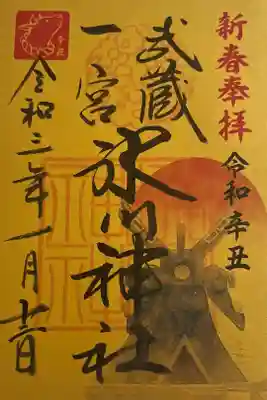 新春奉拝
令和辛丑
武蔵
一宮
氷川神社
令和三年一月十六日